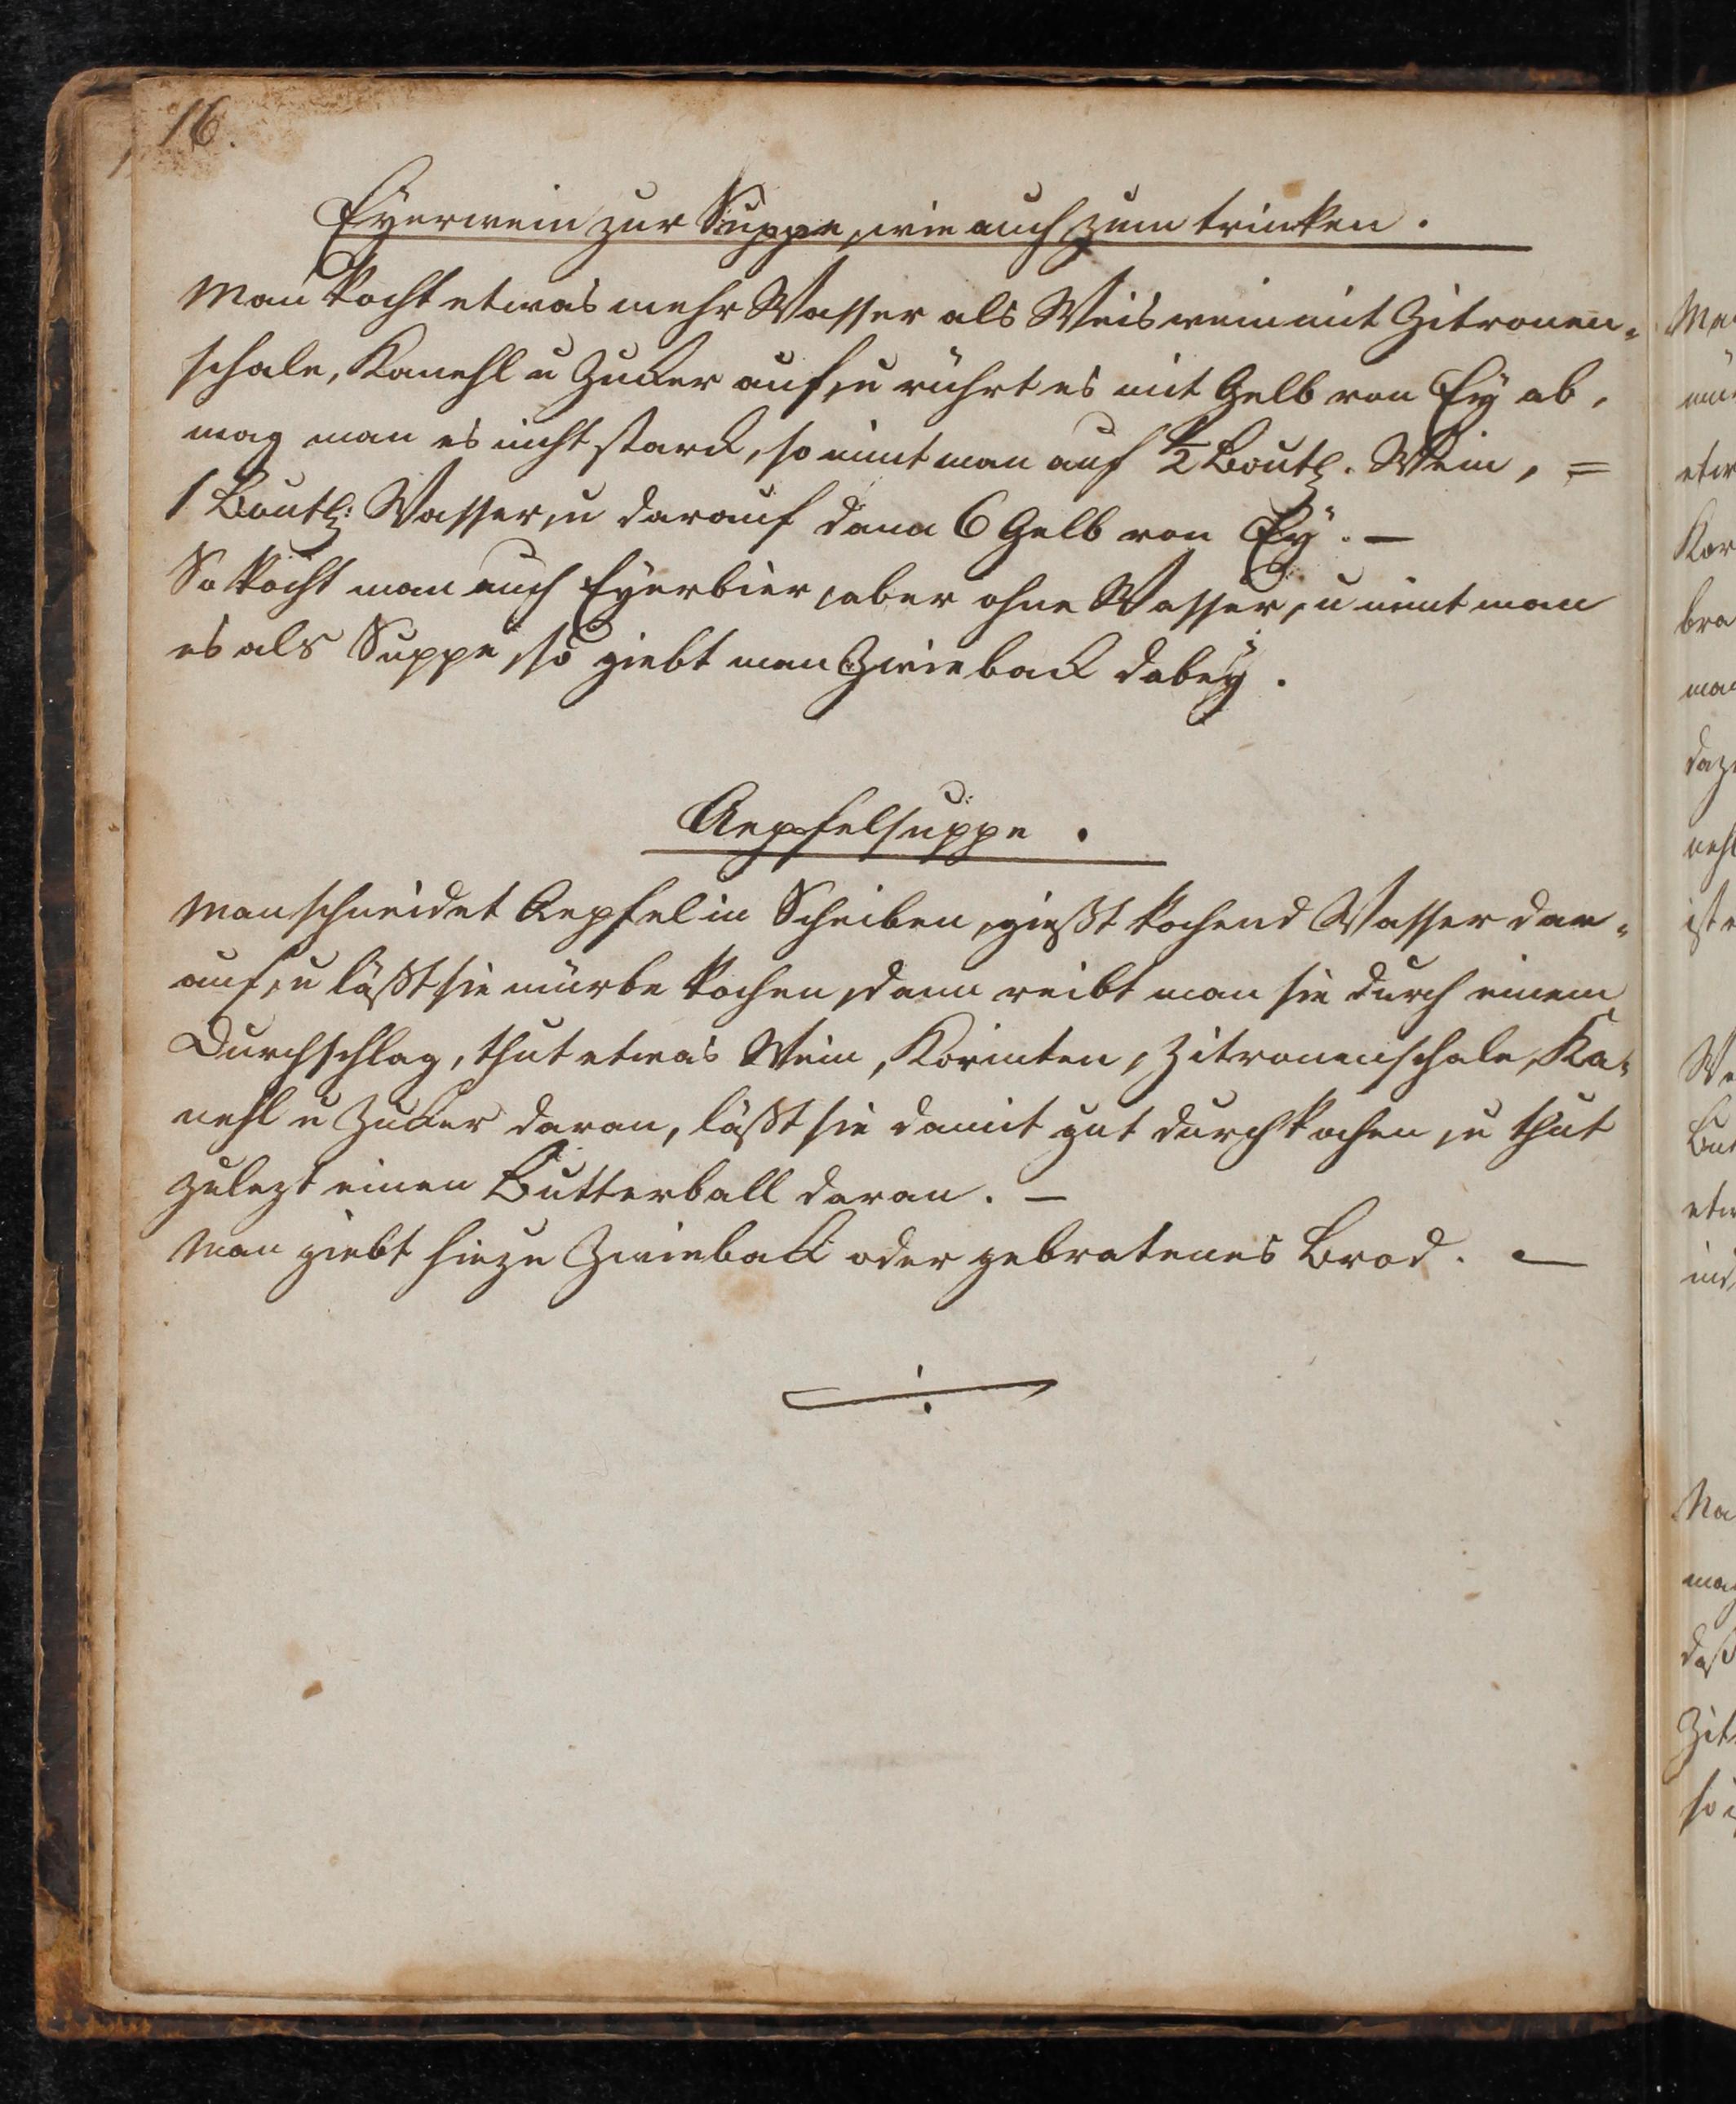 16.
Eyerwein zur Suppe, wie auch zum trinken.
Man kocht etwas mehr Wasser als Weiswein mit Zitronen=
schale, Kanehl u Zucker auf, u rührt es mit Gelb von Ey ab,
mag man es nicht starck, so nimt man auf ½ Boutl. Wein, =
1 Boutl: Wasser, u darauf dann 6 Gelb von Ey. —
So kocht man auch Eyerbier, aber ohne Wasser, u nimt man
es als Suppe, so giebt man Zwieback dabey.
Aepfelsuppe.
Man schneidet Aepfel in Scheiben, gießt kochend Wasser dar=
auf, u läßt sie mürbe kochen, dann reibt man sie durch einem
Durchschlag, thut etwas Wein, Korinten, Zitronenschale, Ka=
nehl u Zucker daran, läßt sie damit gut durchkochen, u thut
zulezt einen Butterball daran. —
Man giebt hiezu Zwieback oder gebratenes Brod. —